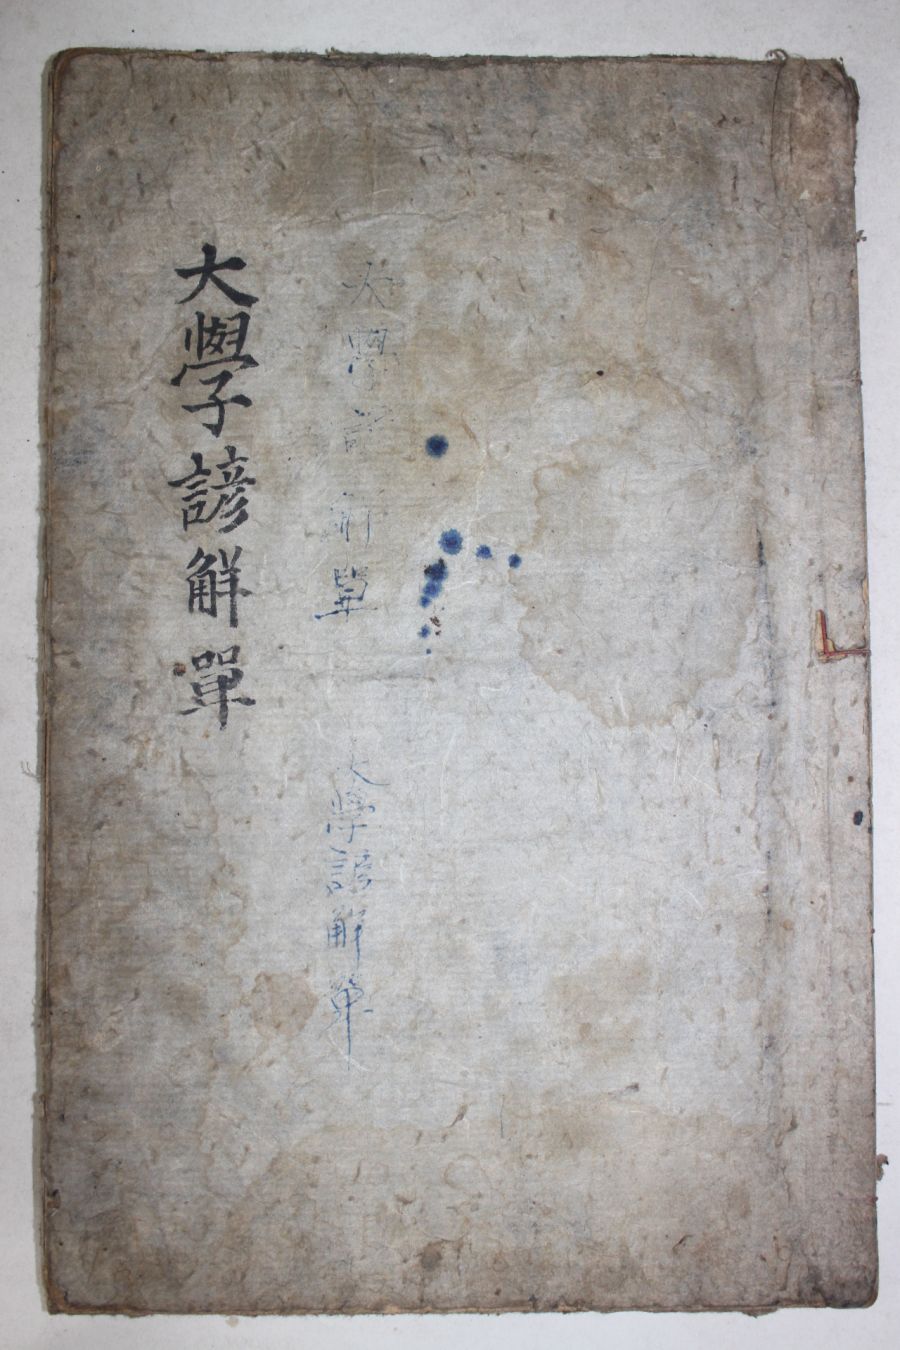 大學諺解單
大學諺解單
大學諺解單